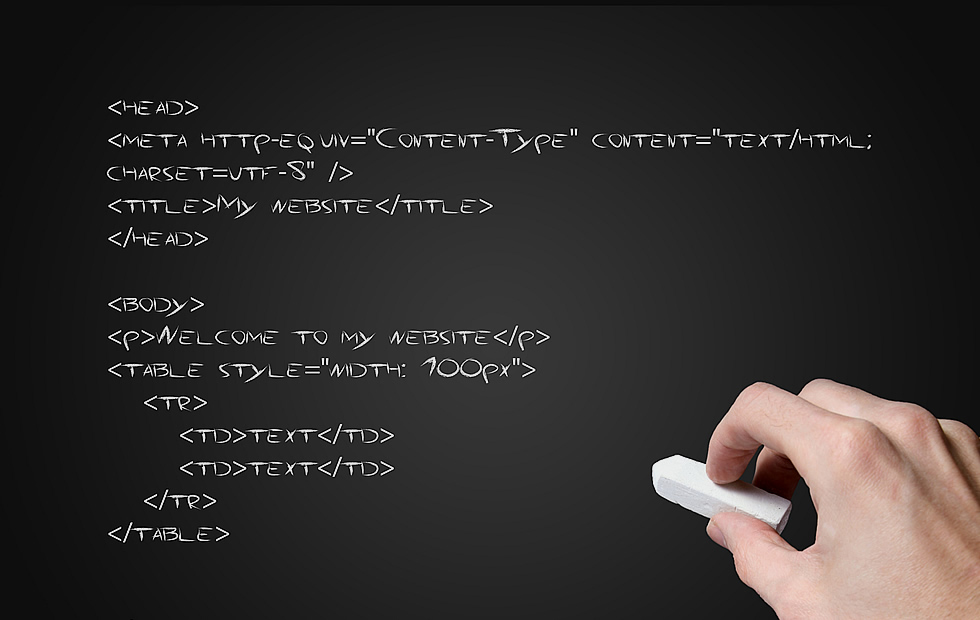 <HEAD>
<META HTTP-EQUIV="CONTENT-TYPE" CONTENT="TEXT/HTML;
CHARSET=UTF-8" />
<TITLE>MY WEBSITE</TITLE>
</HEAD>
<BODY>
<P>WELCOME TO MY WEBSITE</P>
<TABLE STYLE="WIDTH: 100PX">
<TR>
<TD>TEXT</TD>
<TD>TEXT</TD>
</TR>
</TABLE>